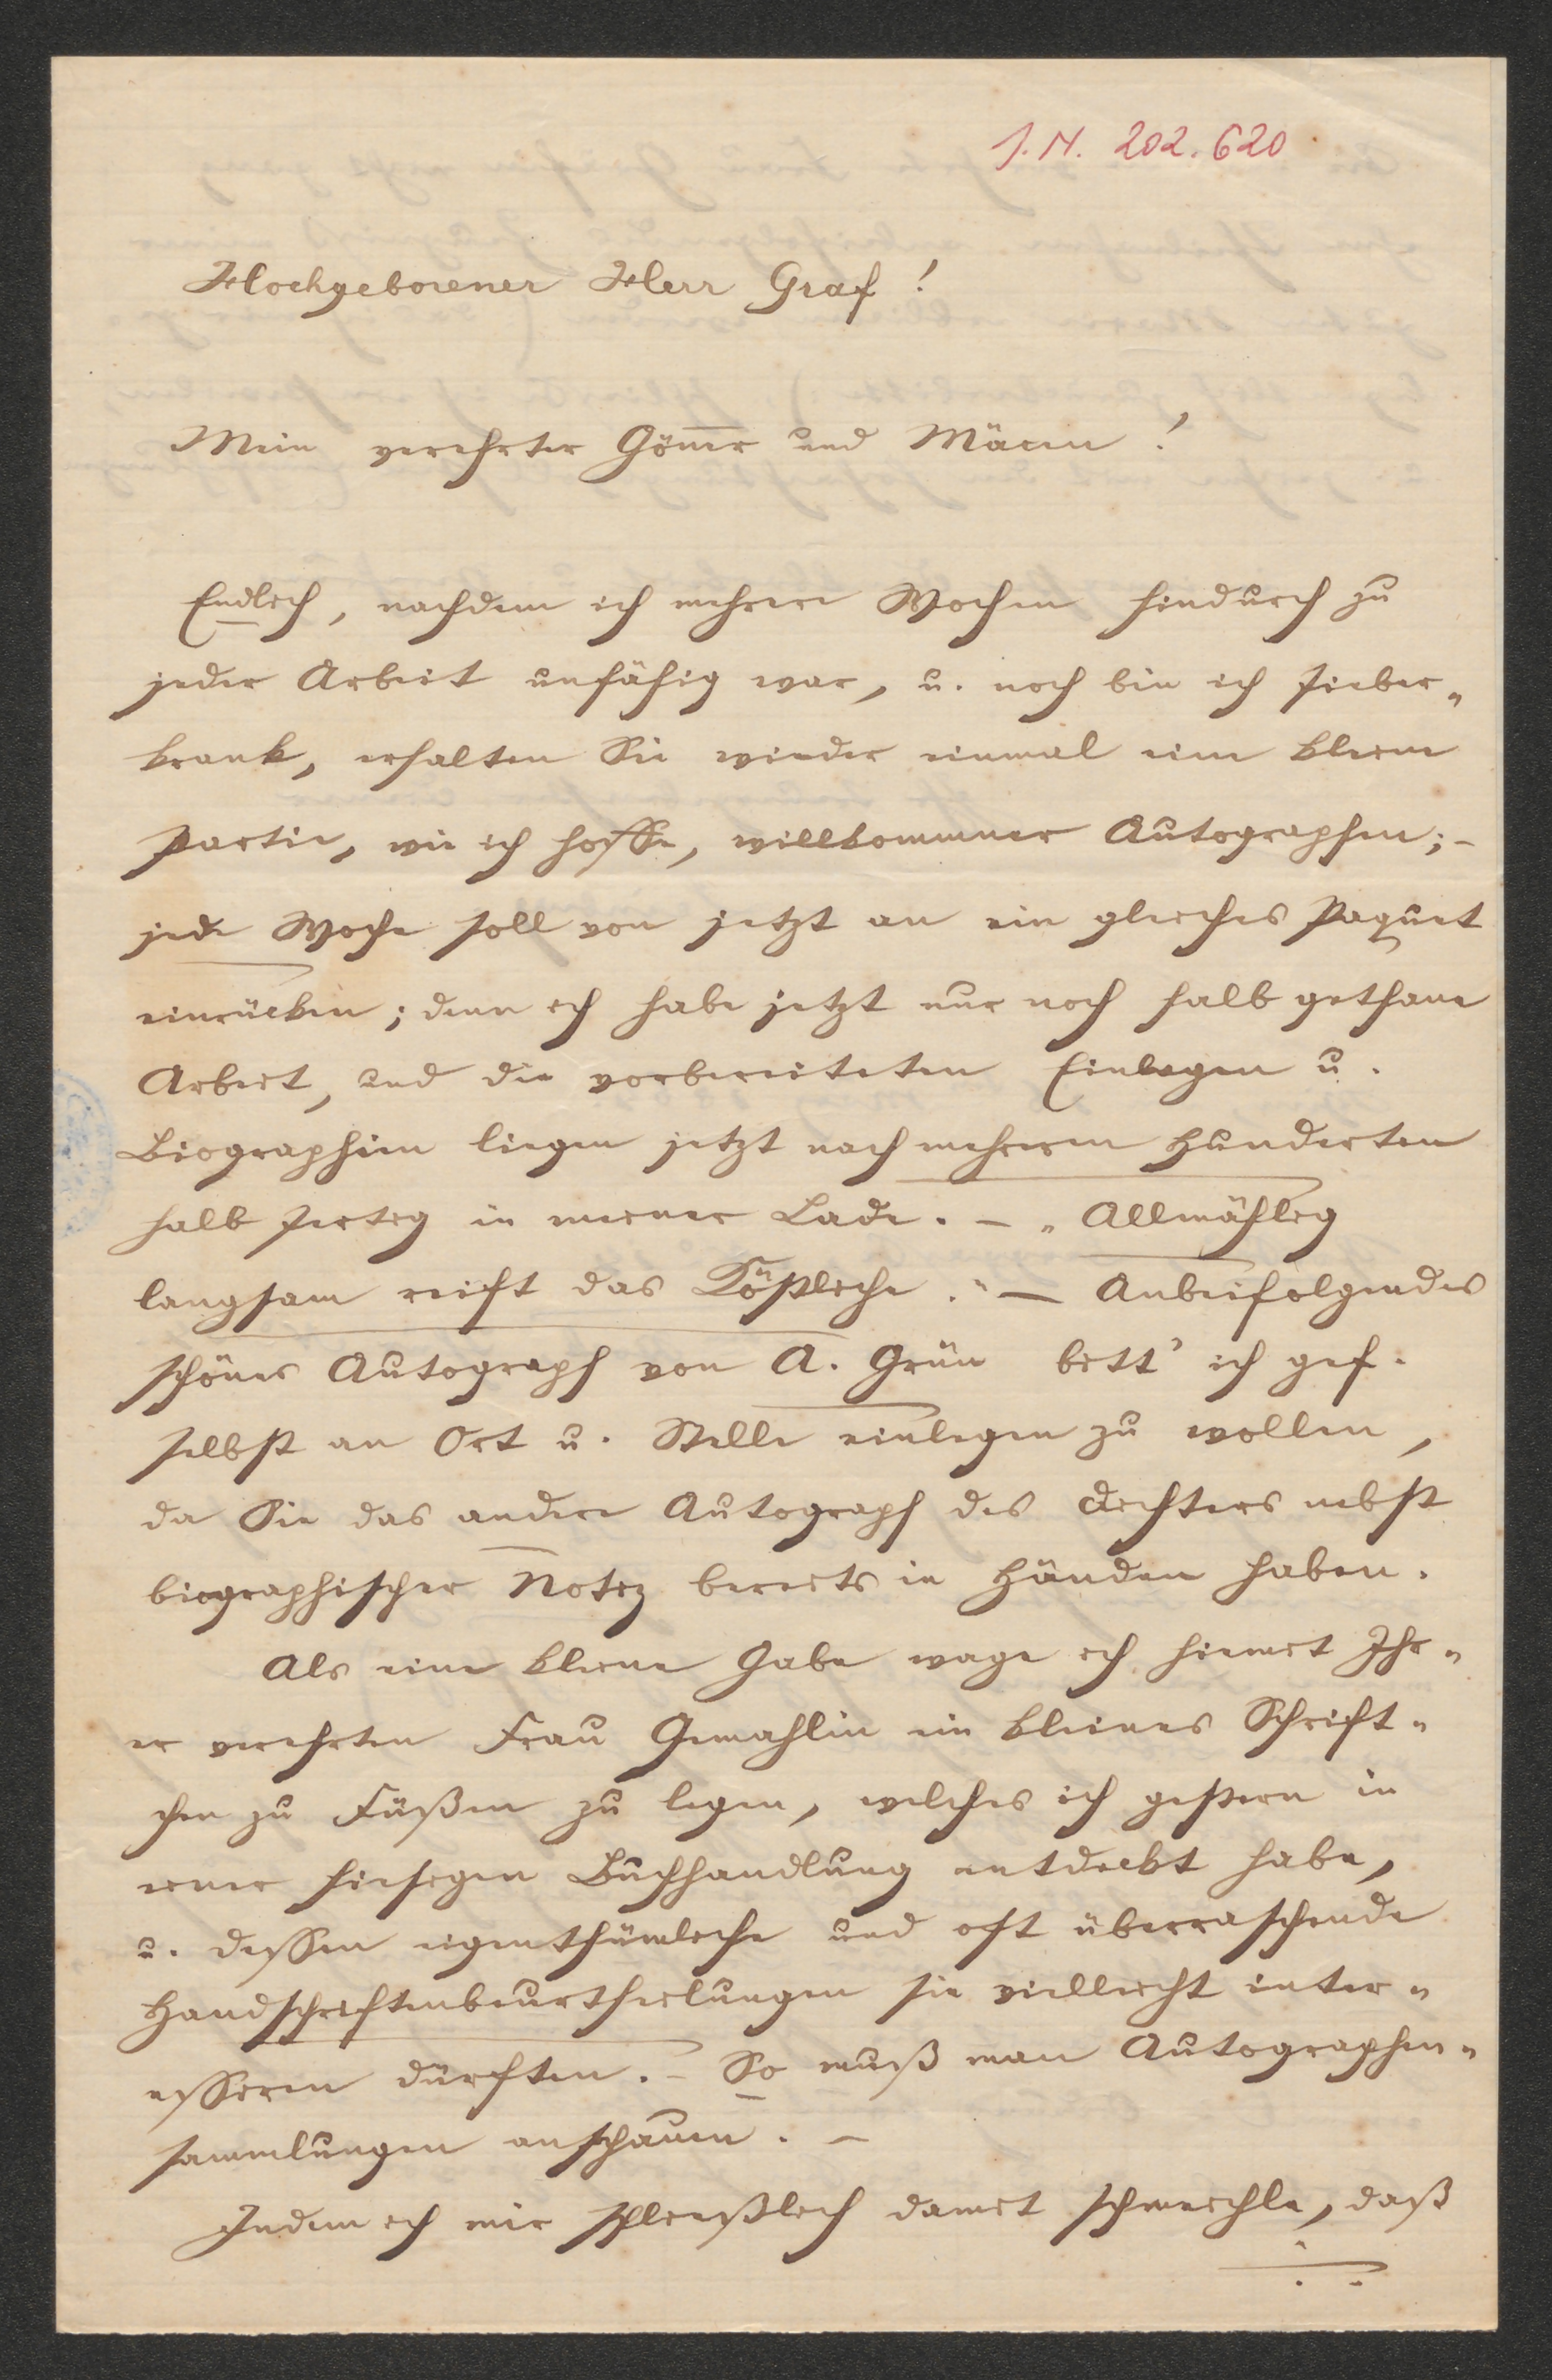 J. N. 202.620
Hochgeborener Herr Graf!
Mein verehrter Gönner und Mäcen!
Endlich, nachdem ich mehrere Wochen hindurch zu
jeder Arbeit unfähig war, u. noch bin ich fieber„
krank, erhalten Sie wieder einmal eine kleine
Partie, wie ich hoffe, willkommner Autographen; –
jede Woche soll von jetzt an ein gleiches Paquet
einrücken; denn ich habe jetzt nur noch halb gethane
Arbeit, und die vorbereiteten Einlagen u.
Biographien liegen jetzt nach mehreren Hunderten
halb fertig in meiner Lade. – „Allmählig
langsam reift das Köstliche." – Anbeifolgendes
schönes Autograph von A. Grün bitt' ich gef.
selbst an Ort u. Stelle einlegen zu wollen,
da Sie das andere Autograph des Dichters nebst
biographischer Notiz bereits in Händen haben.
Als eine kleine Gabe wage ich hiemit Ihr„
er verehrten Frau Gemahlin ein kleines Schrift„
chen zu Füßen zu legen, welches ich gestern in
einer hiesigen Buchhandlung entdeckt habe,
u. dessen eigenthümliche und oft überraschende
Handschriftenbeurtheilungen sie vielleicht inter„
essiren dürften. – So muß man Autographen„
sammlungen anschauen. –
Indem ich mir schließlich damit schmeichle, daß